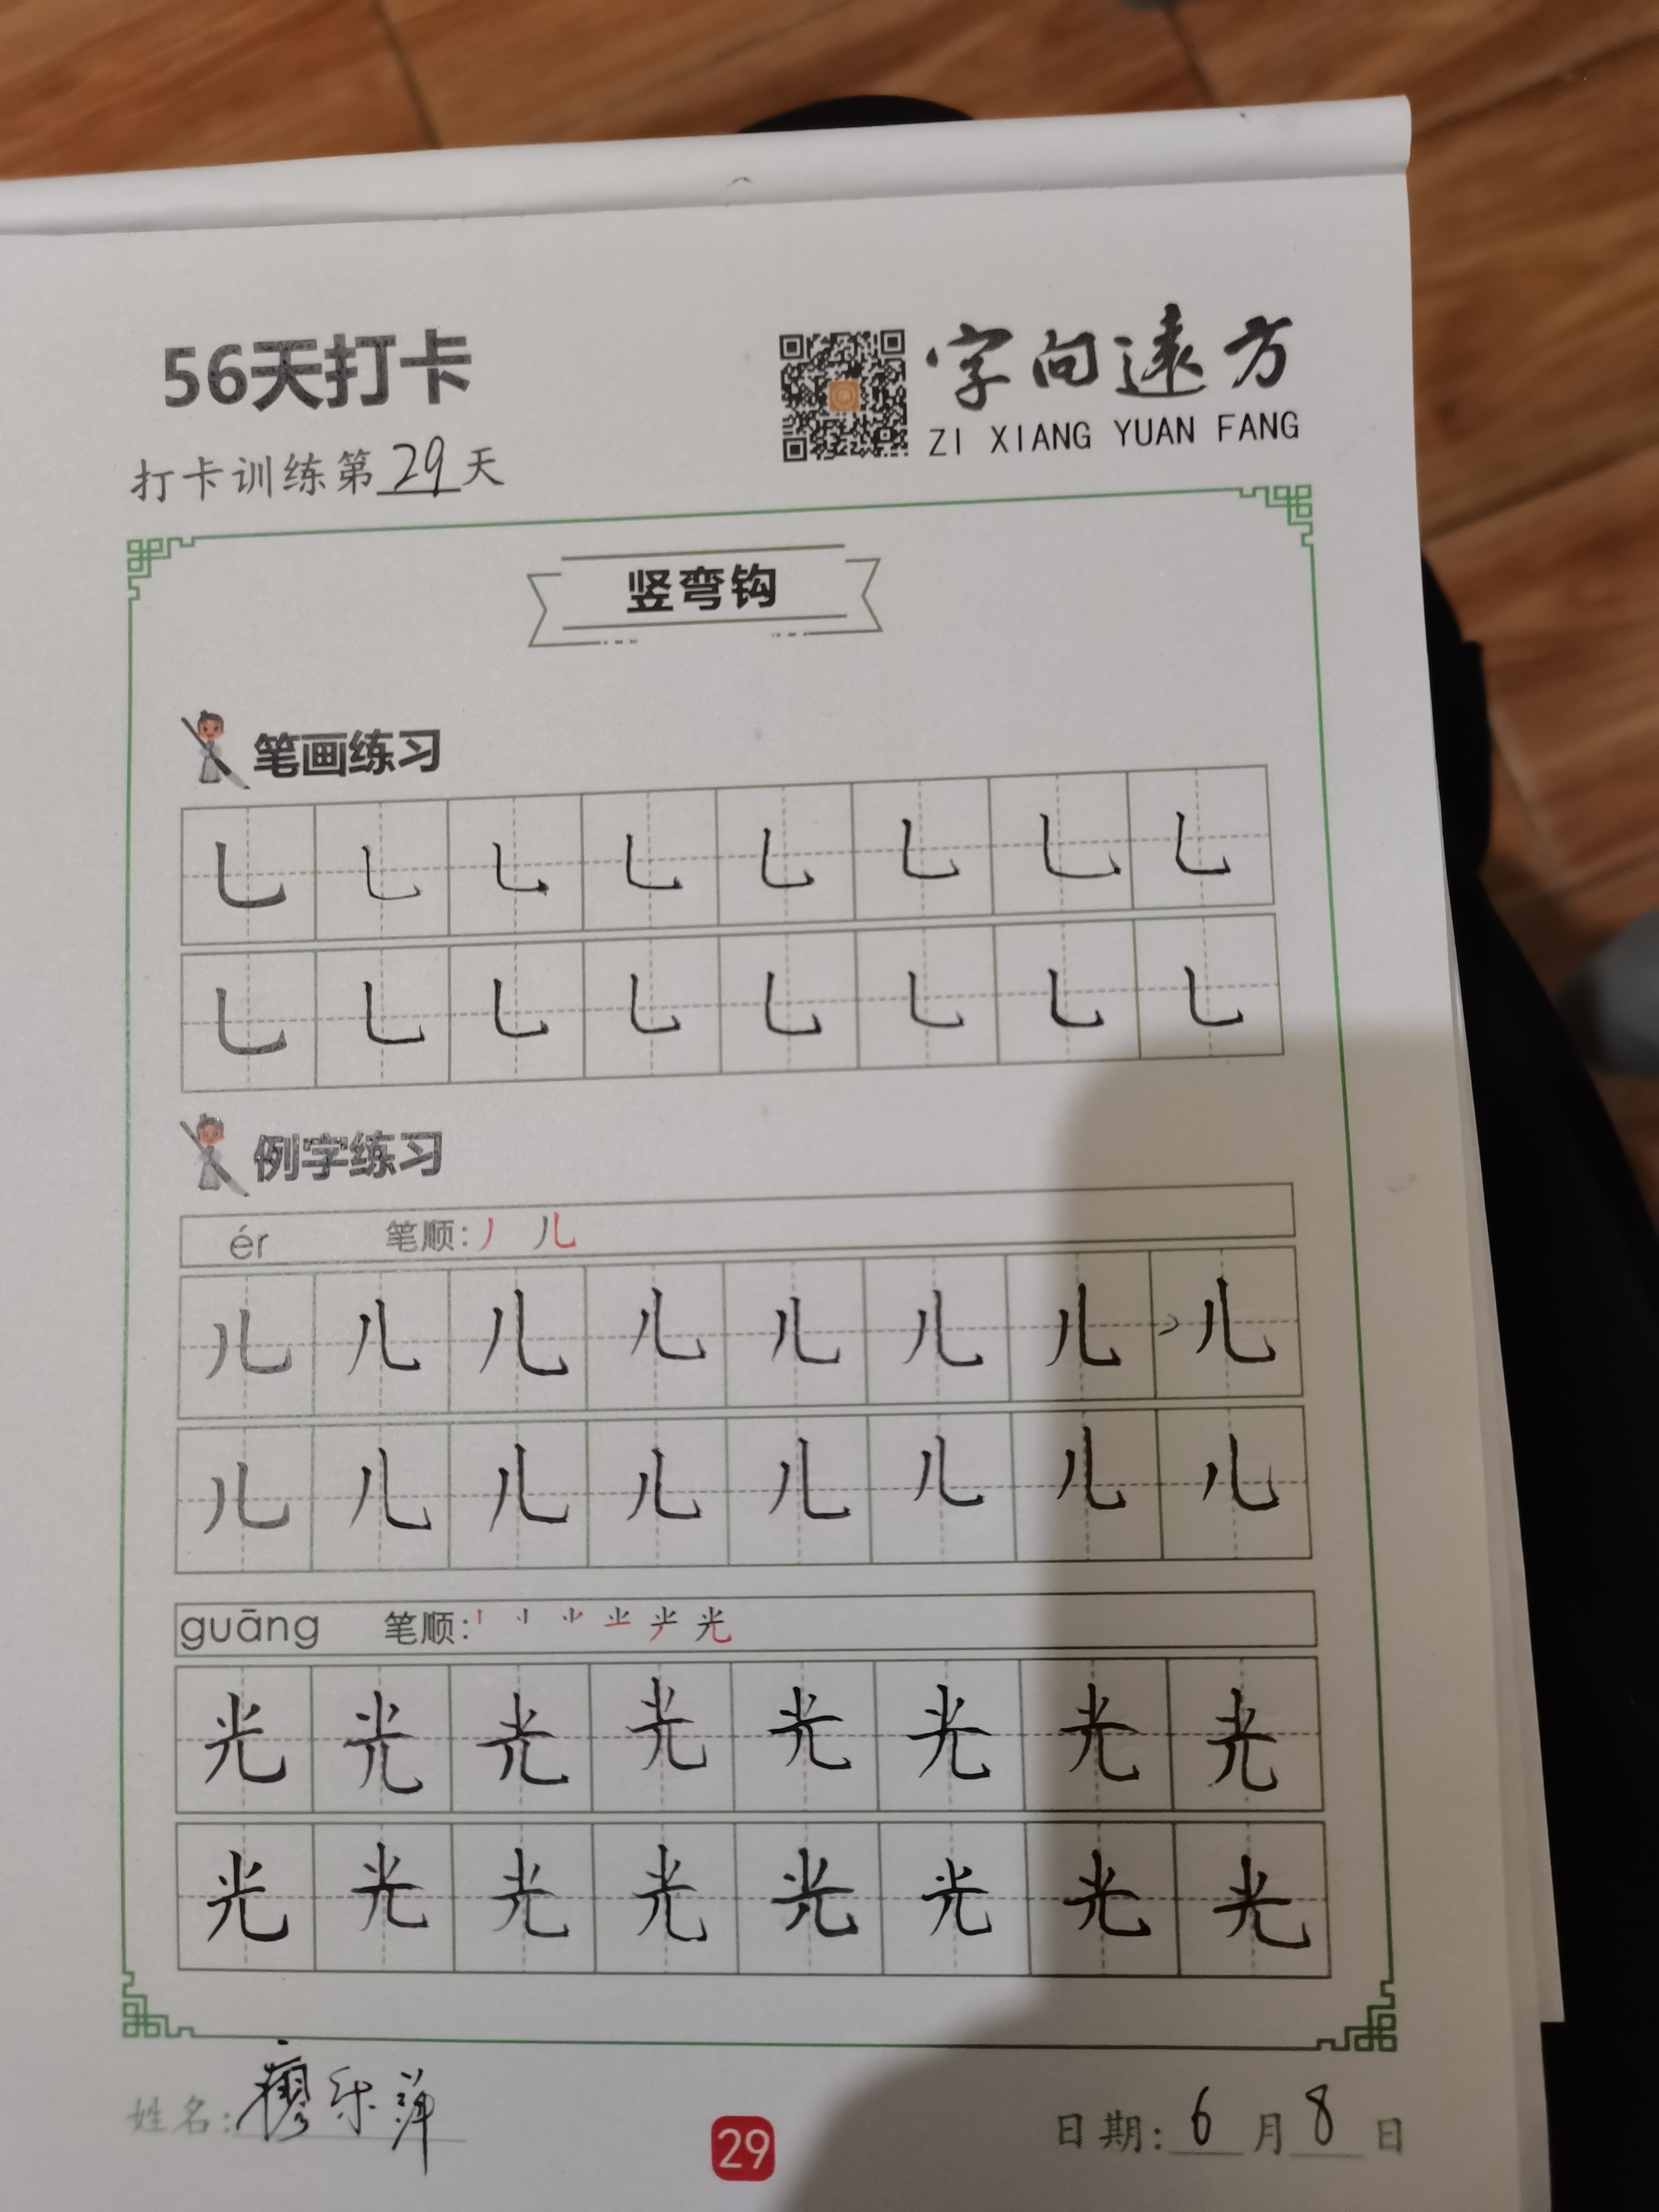 56天打卡
字向遠方
ZI XIANG YUAN FANG
打卡训练第29天
竖弯钩
笔画练习
㇄ ㇄ ㇄ ㇄ ㇄ ㇄ ㇄ ㇄
㇄ ㇄ ㇄ ㇄ ㇄ ㇄ ㇄ ㇄
例字练习
ér 笔顺: 丿 儿
儿 儿 儿 儿 儿 儿 儿 儿
儿 儿 儿 儿 儿 儿 儿 儿
guāng 笔顺: 光
光 光 光 光 光 光 光 光
光 光 光 光 光 光 光 光
姓名:
29
日期: 6 月 8 日